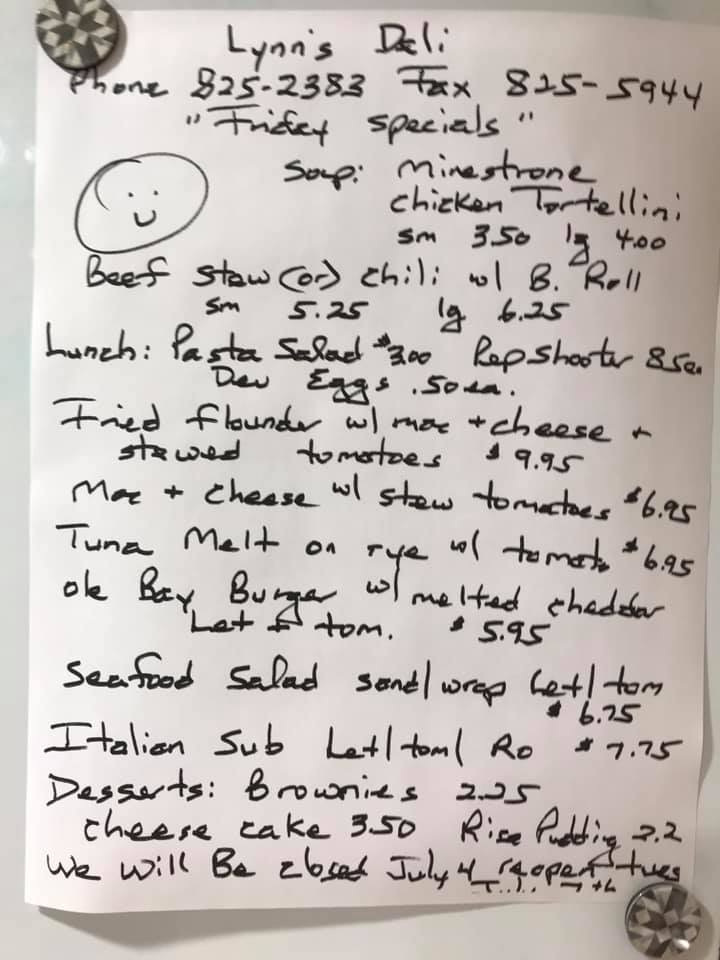 Lynn's Deli
Phone 825-2383 Fax 825-5944
"Friday specials"
Soup: Minestrone
chicken Tortellini
sm 3.50 lg 4.00
Beef stew (or) chili w/ B. Roll
sm 5.25 lg 6.25
Lunch: Pasta Salad $3.00 Pep Shooter .85ea
Dev Eggs .50 ea.
Fried flounder w/ mac + cheese +
stewed tomatoes $9.95
Mac + cheese w/ stew tomatoes $6.95
Tuna Melt on rye w/ tomato $6.95
old Bay Burger w/ melted cheddar
Let + tom. $5.95
Seafood Salad sand/wrap Let/tom
$6.75
Italian Sub Let/tom/ RO $7.75
Desserts: Brownies 2.25
cheese cake 3.50 Rice Pudding 2.2
We will Be closed July 4 reopen tues